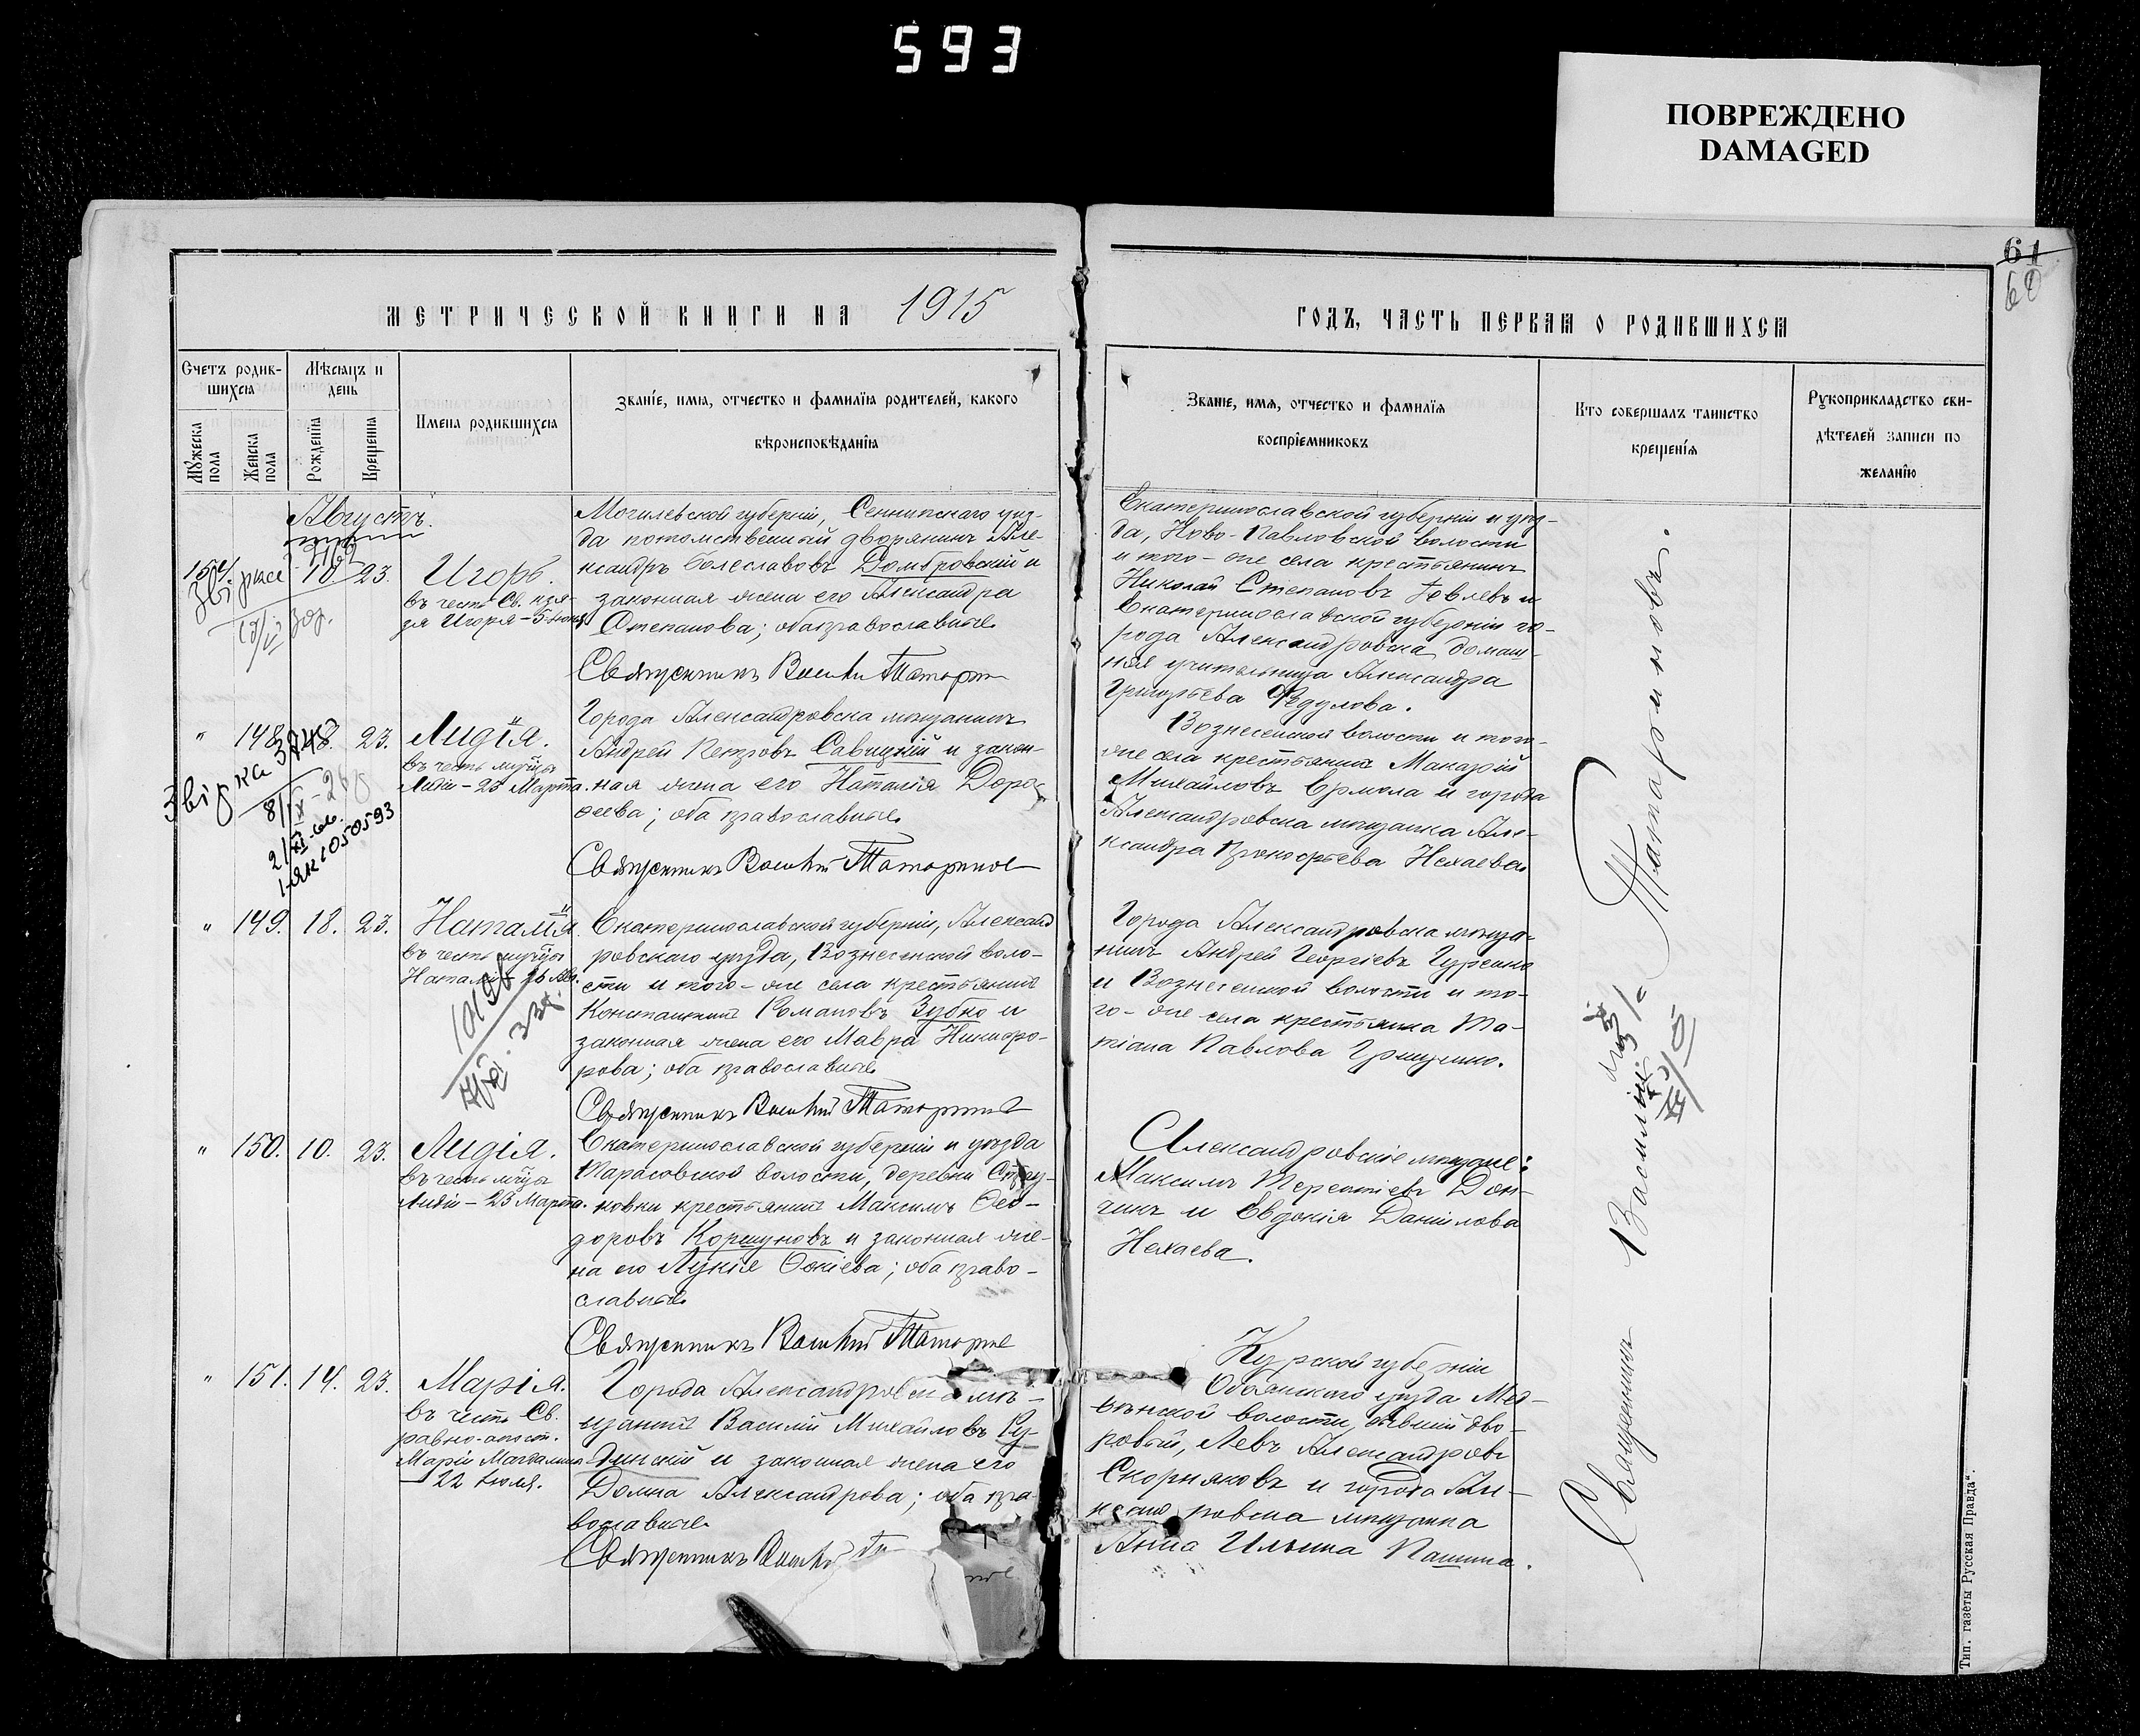 593
ПОВРЕЖДЕНО
DAMAGED
61
60
МЕТРИЧЕСКОЙ КНИГИ НА 1915
ГОДЪ, ЧАСТЬ ПЕРВАЯ О РОДИВШИХСЯ
Счетъ родившихся
Мѣсяцъ и день
Мужеска пола
Женска пола
Рожденія
Крещенія
Имена родившихся
Званіе, имя, отчество и фамилія родителей, какого
вѣроисповѣданія
Званіе, имя, отчество и фамилія
воспріемниковъ
Кто совершалъ таинство
крещенія
Рукоприкладство сви-
дѣтелей записи по
желанію
Августъ.
18 23.
Игорь.
въ честь Св. кня-
зя Игоря - 5 Іюня
Могилевской губерніи, Сеннинскаго уѣз-
да потомственный дворянинъ Але-
ксандръ Болеславовъ Домбровскій и
законная жена его Александра
Степанова; оба православные
Священникъ Василій Татаринов
Екатеринославской губерніи и уѣз-
да, Ново-Павловской волости
и того-же села крестьянинъ
Николай Степановъ Іовлевъ и
Екатеринославской губерніи го-
рода Александровска домаш-
няя учительница Александра
Григорьева Федулова.
" 148. 18. 23.
Лидія.
въ честь муч-цы
Лидіи - 23 Марта.
Звідка 3748
8/IX-26
1-ЯК 050593
Города Александровска мѣщанинъ
Андрей Петровъ Савицкій и закон-
ная жена его Наталія Доро-
феева; оба православные
Священникъ Василій Татаринов
Вознесенской волости и того-
же села крестьянинъ Макарій
Михайловъ Ермола и города
Александровска мѣщанка Але-
ксандра Прокофьева Нехаева
" 149. 18. 23.
Наталія
въ честь муч-цы
Наталіи 26 Авг.
Екатеринославской губерніи, Александ
ровскаго уѣзда, Вознесенской воло-
сти и того-же села крестьянинъ
Константинъ Романовъ Зубко и
законная жена его Мавра Никифо-
рова; оба православные
Священникъ Василій Татаринов
Города Александровска мѣща-
нинъ Андрей Георгіевъ Гуренко
и Вознесенской волости и то-
го-же села крестьянка Та-
тіана Павлова Грищенко.
" 150. 10. 23.
Лидія.
въ честь муч-цы
Лидіи - 23 Марта.
Екатеринославской губерніи и уѣзда
Тарасовской волости, деревни
новки крестьянинъ Максимъ Ѳео-
доровъ Коршуновъ и законная же-
на его Лукія Фокіева; оба право-
славные
Священникъ Василій Татаринов
Александровскіе мѣщане:
Максимъ Терентіевъ Дон-
чикъ и Евдокія Даніилова
Нехаева.
" 151. 14. 23.
Марія.
въ честь Св.
равно-апост.
Маріи Магдалины
22 Іюля.
Города Александровска мѣ-
щанинъ Василій Михайловъ Ру-
динскій и законная жена его
Домна Александрова; оба пра
вославные
Священникъ Василій
Курской губерніи
Обоянскаго уѣзда Мед-
вѣнской волости, бывшій дво-
ровый, Левъ Александровъ
Скорняковъ и города Але-
ксандровска мѣщанка
Анна Ильина Пашина.
Священникъ Василій Татариновъ.
Тип. газеты „Русская Правда“.